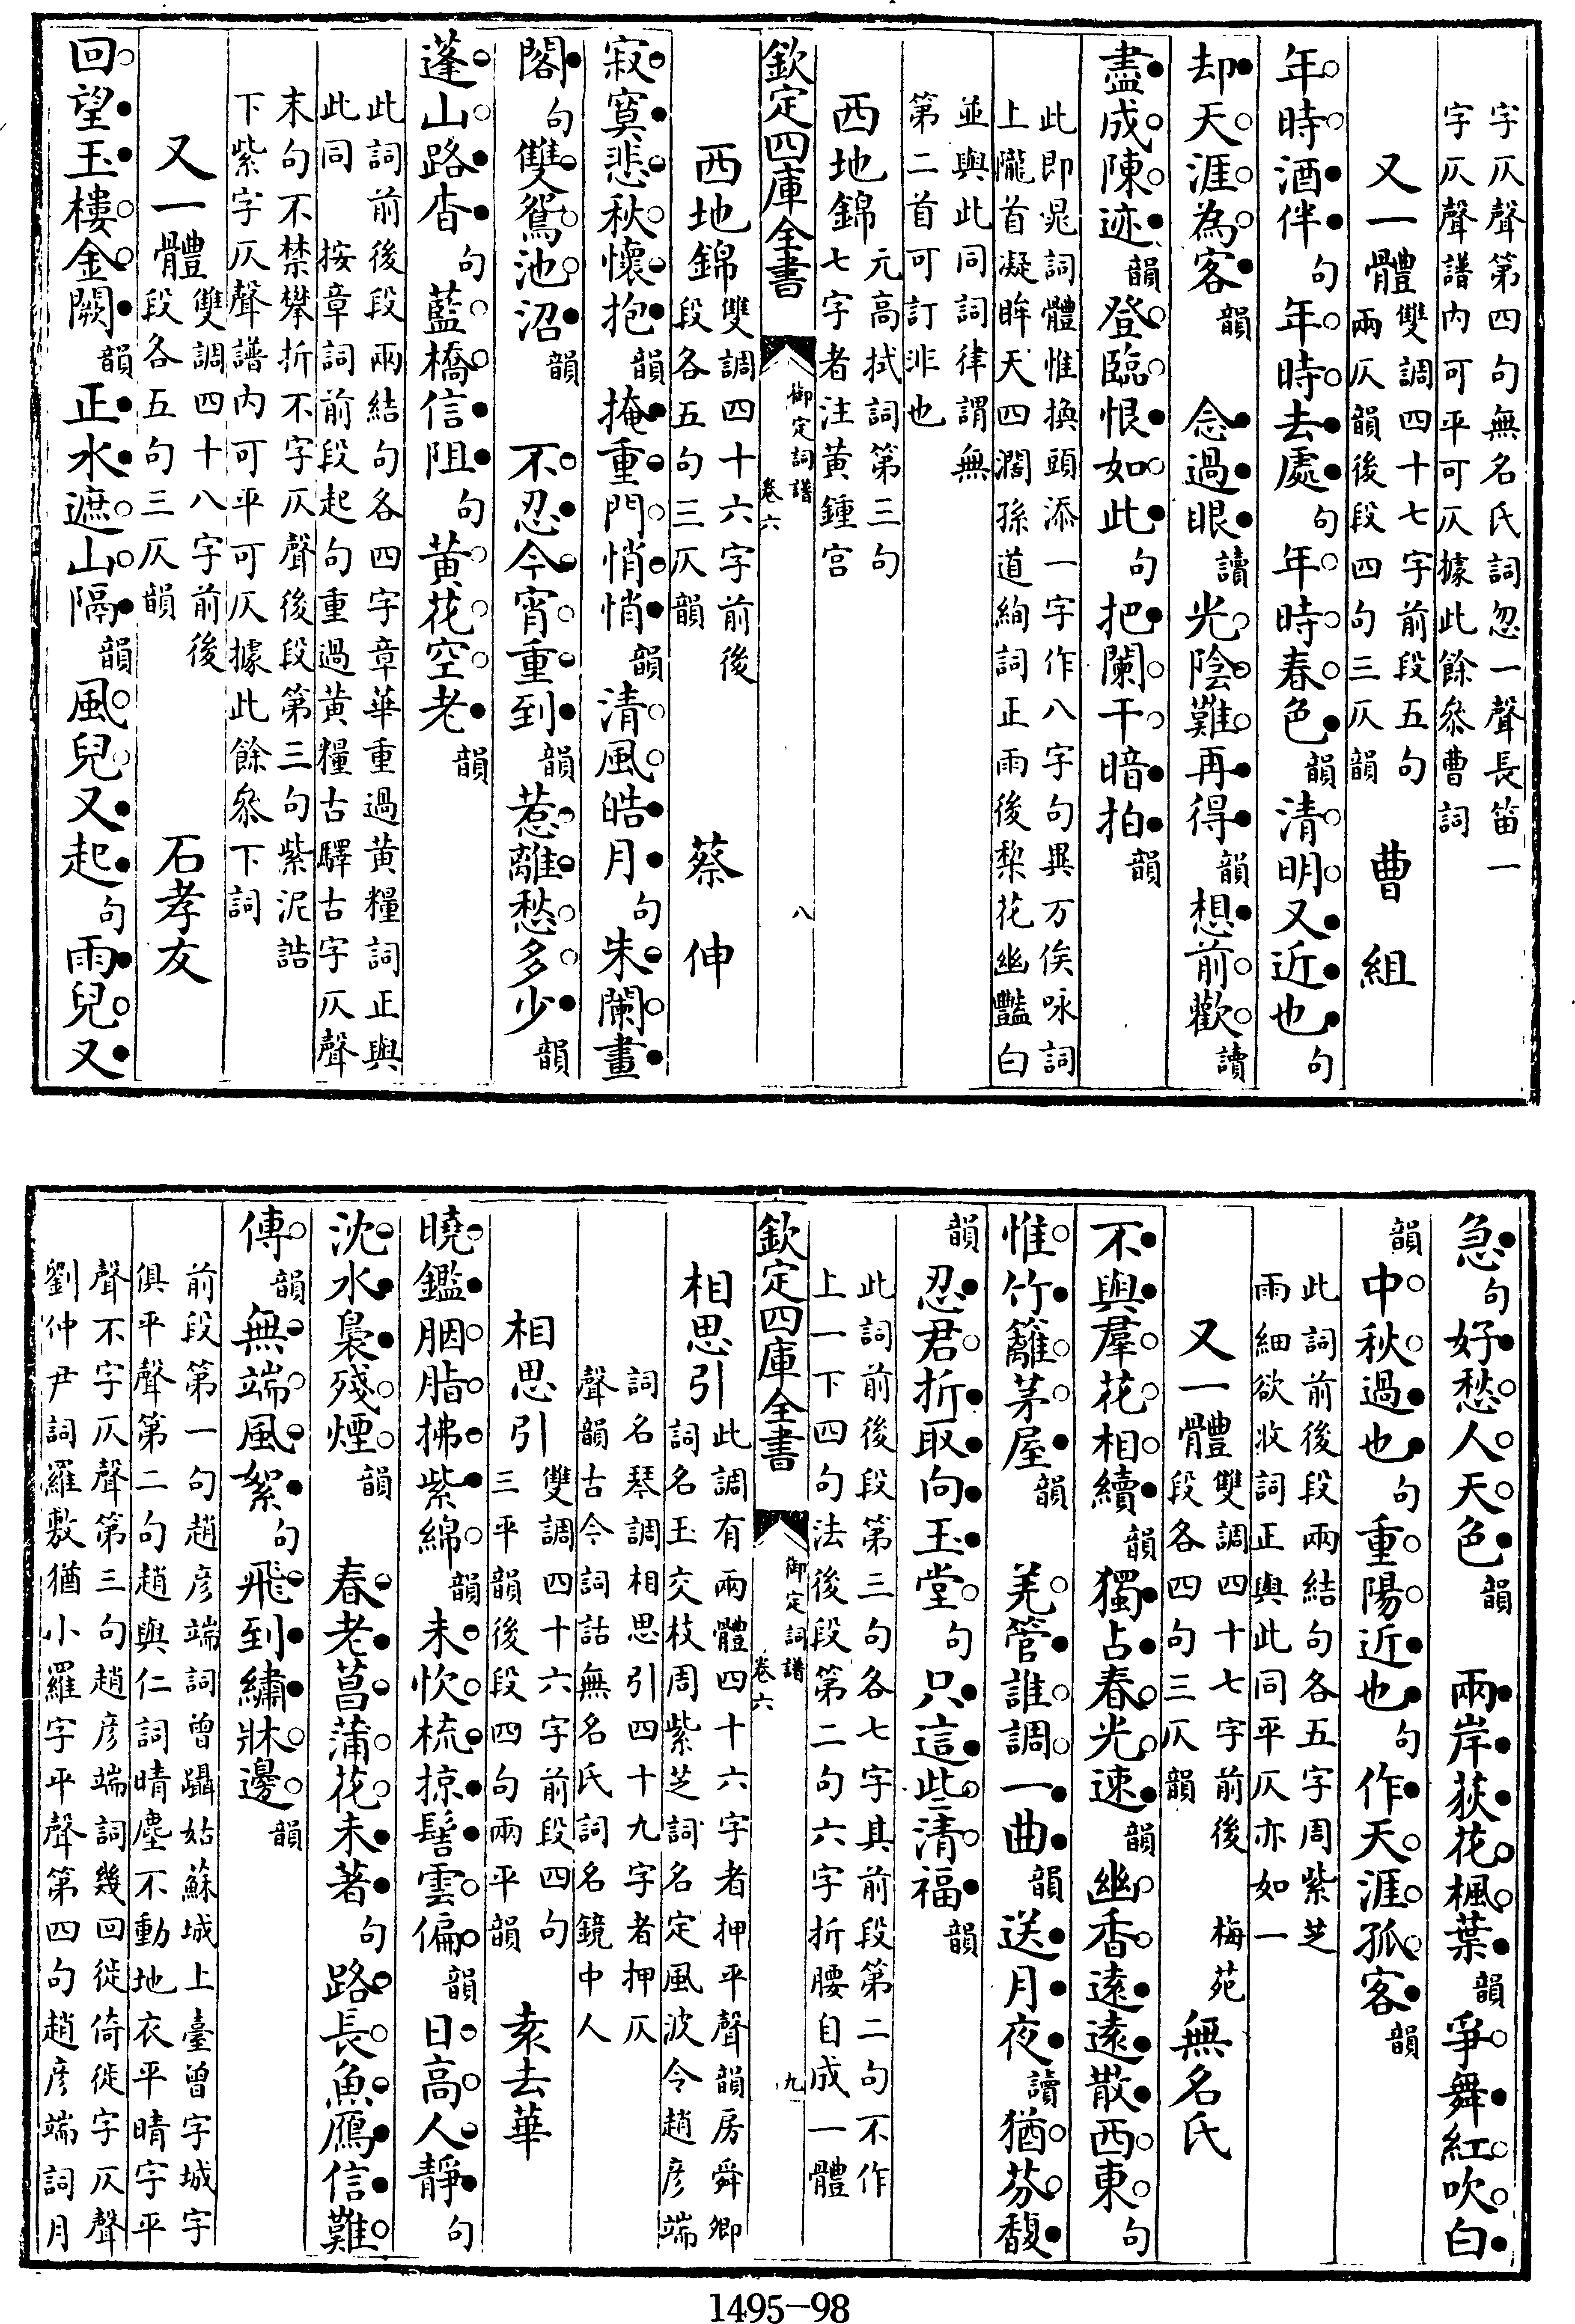 字仄聲第四句無名氏詞忽一聲長笛一
字仄聲譜内可平可仄據此餘參曹詞
又一體 雙調四十七字前段五句
兩仄韻後段四句三仄韻 曹組
年時酒伴句年時去處句年時春色韻清明又近也句
却天涯為客韻 念過眼讀光陰難再得韻想前歡讀
盡成陳迹韻登臨恨如此句把闌干暗拍韻
此即晁詞體惟換頭添一字作八字句異万俟咏詞
上隴首凝眸天四濶孫道絢詞正雨後梨花幽豔白
並與此同詞律謂無
第二首可訂非也
西地錦 元高拭詞第三句
七字者注黄鍾宫
欽定四庫全書 御定詞譜 卷六 八
西地錦 雙調四十六字前後
段各五句三仄韻 蔡伸
寂寞悲秋懷抱韻掩重門悄悄韻清風皓月句朱闌畫
閣句雙鴛池沼韻 不忍今宵重到韻惹離愁多少韻
蓬山路杳句藍橋信阻句黄花空老韻
此詞前後段兩結句各四字章華重過黄糧詞正與
此同 按章詞前段起句重過黄糧古驛古字仄聲
末句不禁攀折不字仄聲後段第三句紫泥誥
下紫字仄聲譜内可平可仄據此餘參下詞
又一體 雙調四十八字前後
段各五句三仄韻 石孝友
回望玉樓金闕韻正水遮山隔韻風兒又起句雨兒又
急句好愁人天色韻 兩岸荻花楓葉韻爭舞紅吹白
韻中秋過也句重陽近也句作天涯孤客韻
此詞前後段兩結句各五字周紫芝
雨細欲收詞正與此同平仄亦如一
又一體 雙調四十七字前後
段各四句三仄韻 梅苑 無名氏
不與羣花相續韻獨占春光速韻幽香遠遠散西東句
惟竹籬茅屋韻 羌管誰調一曲韻送月夜讀猶芬馥
韻忍君折取向玉堂句只這些清福韻
此詞前後段第三句各七字其前段第二句不作
上一下四句法後段第二句六字折腰自成一體
欽定四庫全書 御定詞譜 卷六 九
相思引 此調有兩體四十六字者押平聲韻房舜卿
詞名玉交枝周紫芝詞名定風波令趙彦端
詞名琴調相思引四十九字者押仄
聲韻古今詞話無名氏詞名鏡中人
相思引 雙調四十六字前段四句
三平韻後段四句兩平韻 袁去華
曉鑑胭脂拂紫綿韻未忺梳掠髻雲偏韻日高人靜句
沈水裊殘煙韻 春老菖蒲花未著句路長魚鴈信難
傳韻無端風絮句飛到繡牀邊韻
前段第一句趙彦端詞曾躡姑蘇城上臺曾字城字
俱平聲第二句趙與仁詞晴塵不動地衣平晴字平
聲不字仄聲第三句趙彦端詞幾回徙倚徙字仄聲
劉仲尹詞羅敷猶小羅字平聲第四句趙彦端詞月
1495-98